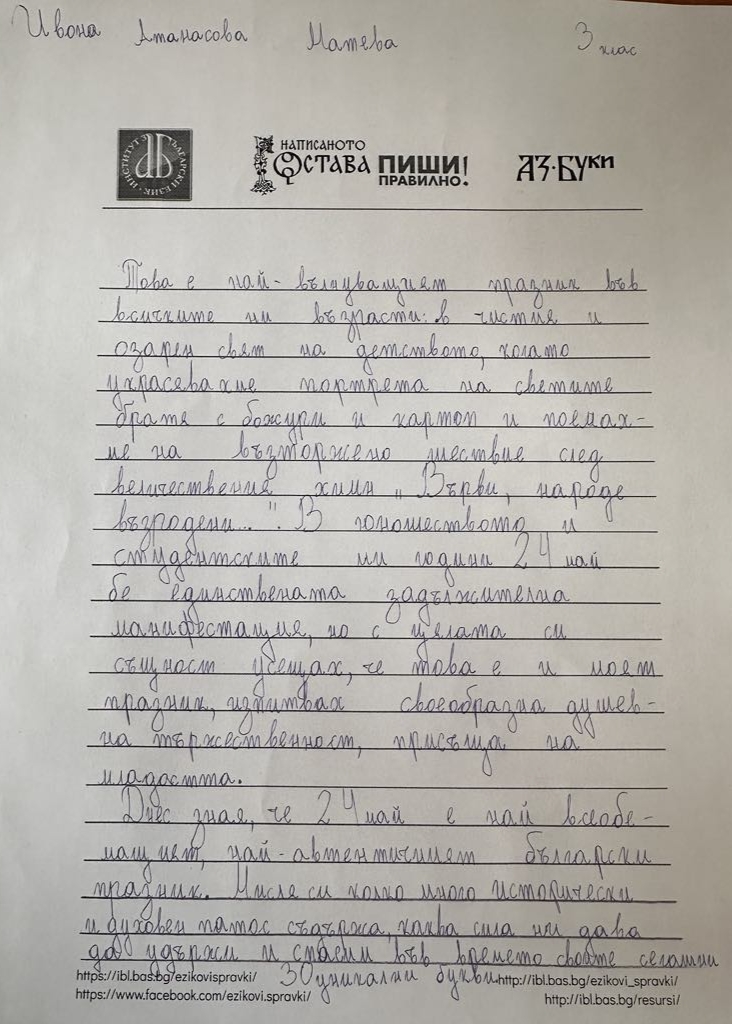 Ивона Атанасова Матева 3 клас
ИНСТИТУТ ЗА БЪЛГАРСКИ ЕЗИК
НАПИСАНОТО
ОСТАВА ПИШИ!
ПРАВИЛНО!
АЗ·БУКИ
Това е най-вълнуващият празник във
всичките ни възрасти: в чистия и
озарен свят на детството, когато
украсявахме портрета на светите
братя с божури и картоп и поемах-
ме на възторжено шествие след
величествения химн „Върви, народе
възродени...". В юношеството и
студентските ми години 24 май
бе единствената задължителна
манифестация, но с цялата си
същност усещах, че това е и моят
празник, изпитвах своеобразна душев-
на тържественност, присъща на
младостта.
Днес зная, че 24 май е най всеобе-
мащият, най-автентичният български
празник. Мисля си колко много исторически
и духовен патос съдържа, каква сила ни дава
да удържи и спасим във времето своите сегашни
30 уникални букви
https://ibl.bas.bg/ezikovispravki/ http://ibl.bas.bg/ezikovi_spravki/
https://www.facebook.com/ezikovi.spravki/ http://ibl.bas.bg/resursi/